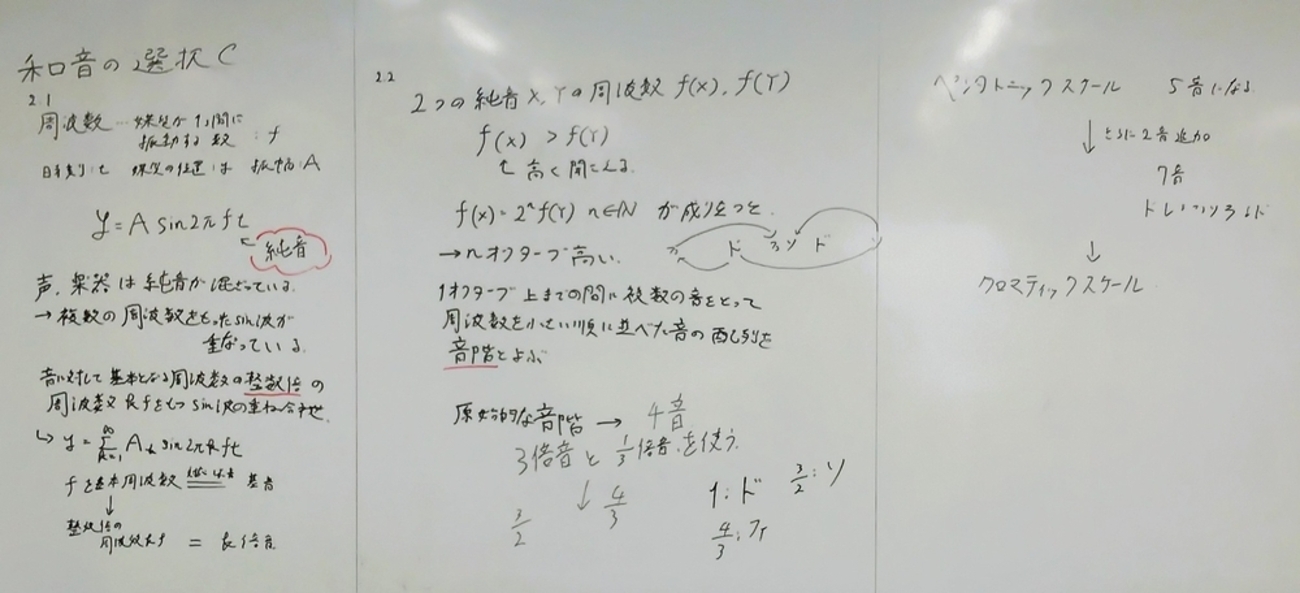 和音の選択 C
2.1
周波数 … 媒質が1s間に
振動する数 : f
時刻:t 媒質の位置:y 振幅:A
y = A sin2πft
純音
声、楽器は純音が混ざっている。
→ 複数の周波数をもった sin波が
重なっている。
音に対して基本となる周波数の整数倍の
周波数 kfをもつ sin波の重ね合わせ。
↳ y = Σ_{k=1}^{∞} A_k sin2πkft
fを基本周波数 基音
↓
整数倍の
周波数kf = k倍音
2.2
2つの純音 X, Yの周波数 f(X), f(Y)
f(X) > f(Y)
↑ 高く聞こえる。
f(X) = 2ⁿf(Y) n∈ℕ が成り立つと、
→ nオクターブ高い。
ド ソ ド
1オクターブ上までの間に複数の音をとって
周波数を小さい順に並べた音の配列を
音階とよぶ
原始的な音階 → 4音
3倍音と 1/3倍音を使う。
↓
3/2 4/3
1:ド 3/2:ソ
4/3:ファ
ペンタトニックスケール 5音になる
↓ さらに2音追加
7音
ドレミファソラシド
↓
クロマティックスケール